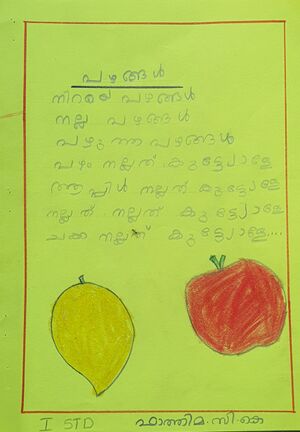 പഴങ്ങൾ
നിറയെ പഴങ്ങൾ
നല്ല പഴങ്ങൾ
പഴുത്ത പഴങ്ങൾ
പഴം നല്ലത് കൂട്ടരേ
ആപ്പിൾ നല്ലത് കൂട്ടരേ
നല്ലത് നല്ലത് കൂട്ടരേ
ചക്ക നല്ലത് കൂട്ടരേ....
I STD ഫാത്തിമ.സി.കെ